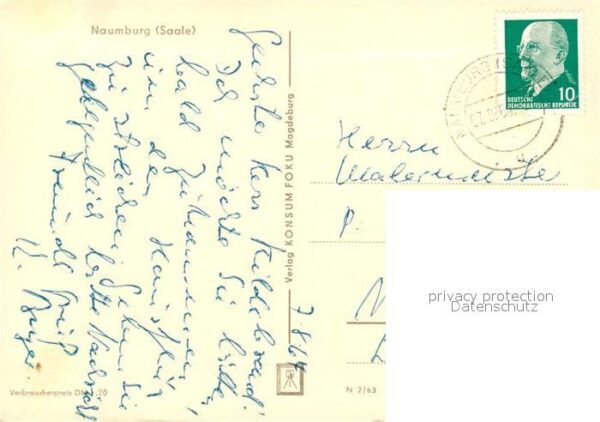 Naumburg (Saale)
Geehrter Herr Hildebrand!
Ich möchte Sie bitten,
bald zu kommen,
um den Hausflur
zu streichen. Geben Sie
gelegentlich bitte Nachricht
Freundl. Gruß
K.
7.8.64
Verlag KONSUM FOKU Magdeburg
Verbraucherpreis DM 0.20
N 2/63
NAUMBURG (S
10
DEUTSCHE
DEMOKRATISCHE REPUBLIK
Herrn
Malermeister
P.
privacy protection
Datenschutz